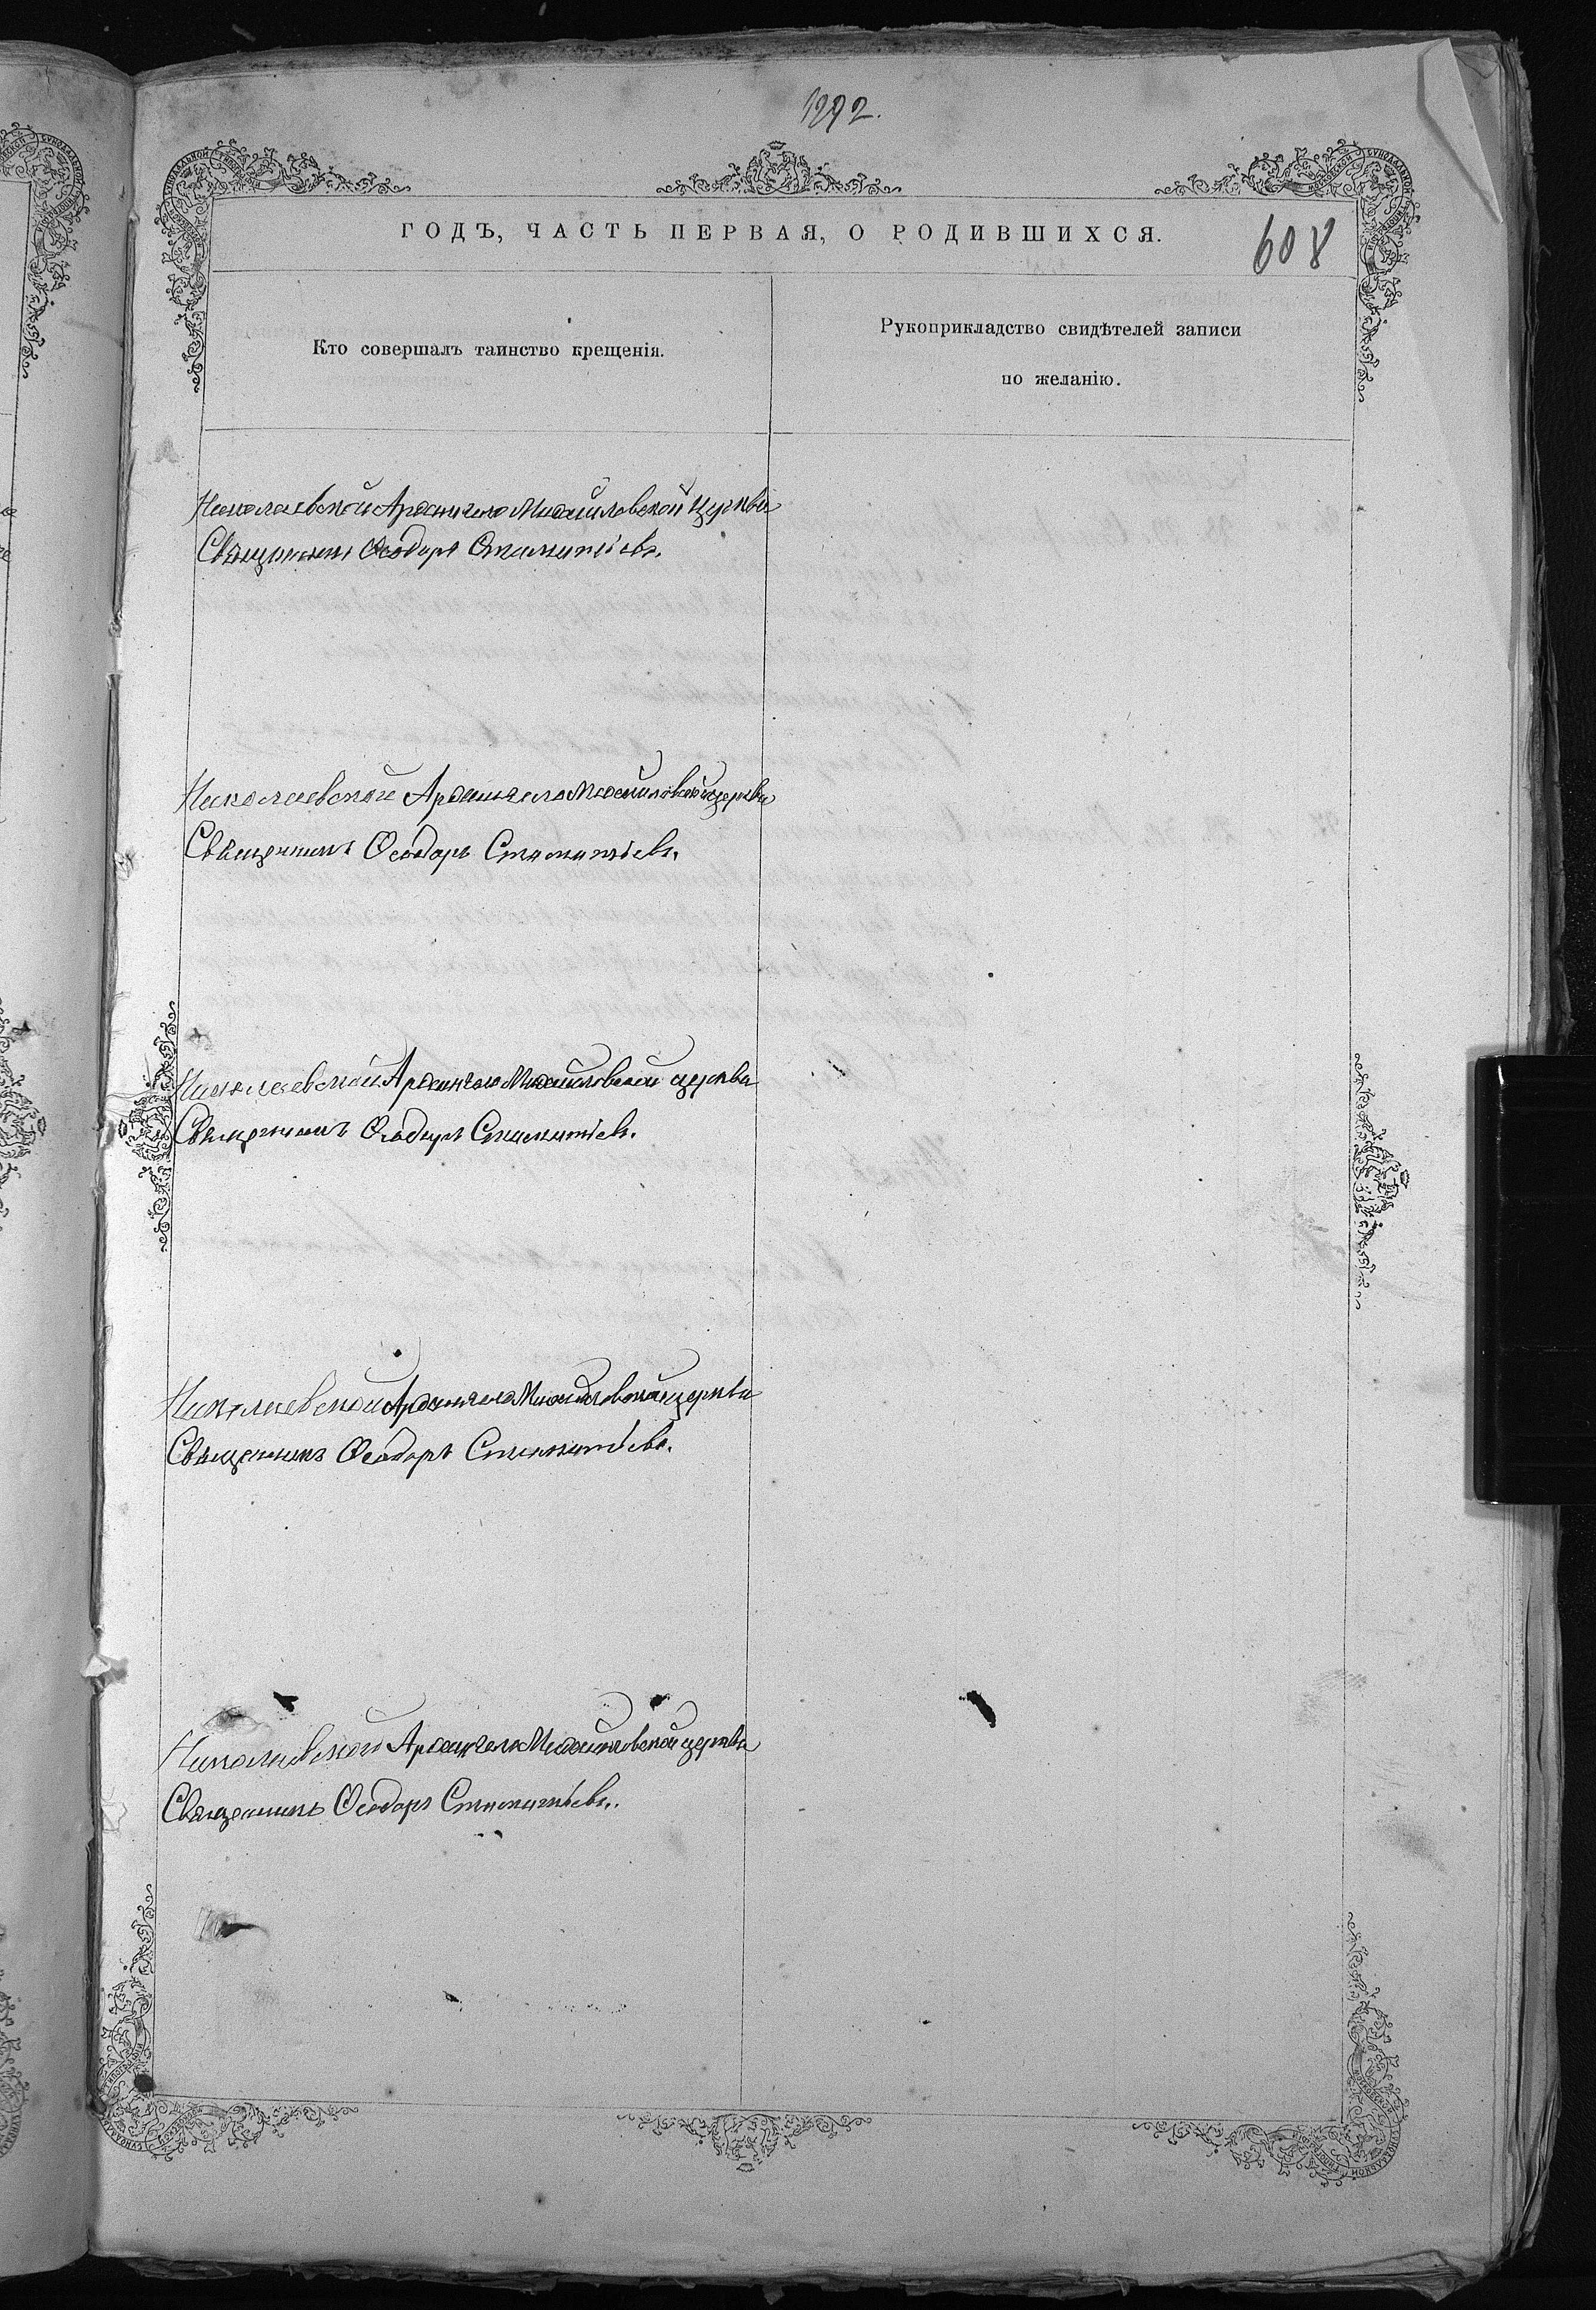 1292.
ГОДЪ, ЧАСТЬ ПЕРВАЯ, О РОДИВШИХСЯ.
608
Кто совершалъ таинство крещенія.
Рукоприкладство свидѣтелей записи
по желанію.
Николаевской Архангело Михайловской церкви
Священникъ Ѳеодоръ Стаматіевъ.
Николаевской Архангело Михайловской церкви
Священникъ Ѳеодоръ Стаматіевъ.
Николаевской Архангело Михайловской церкви
Священникъ Ѳеодоръ Стаматіевъ.
Николаевской Архангело Михайловской церкви
Священникъ Ѳеодоръ Стаматіевъ.
Николаевской Архангело Михайловской церкви
Священникъ Ѳеодоръ Стаматіевъ.